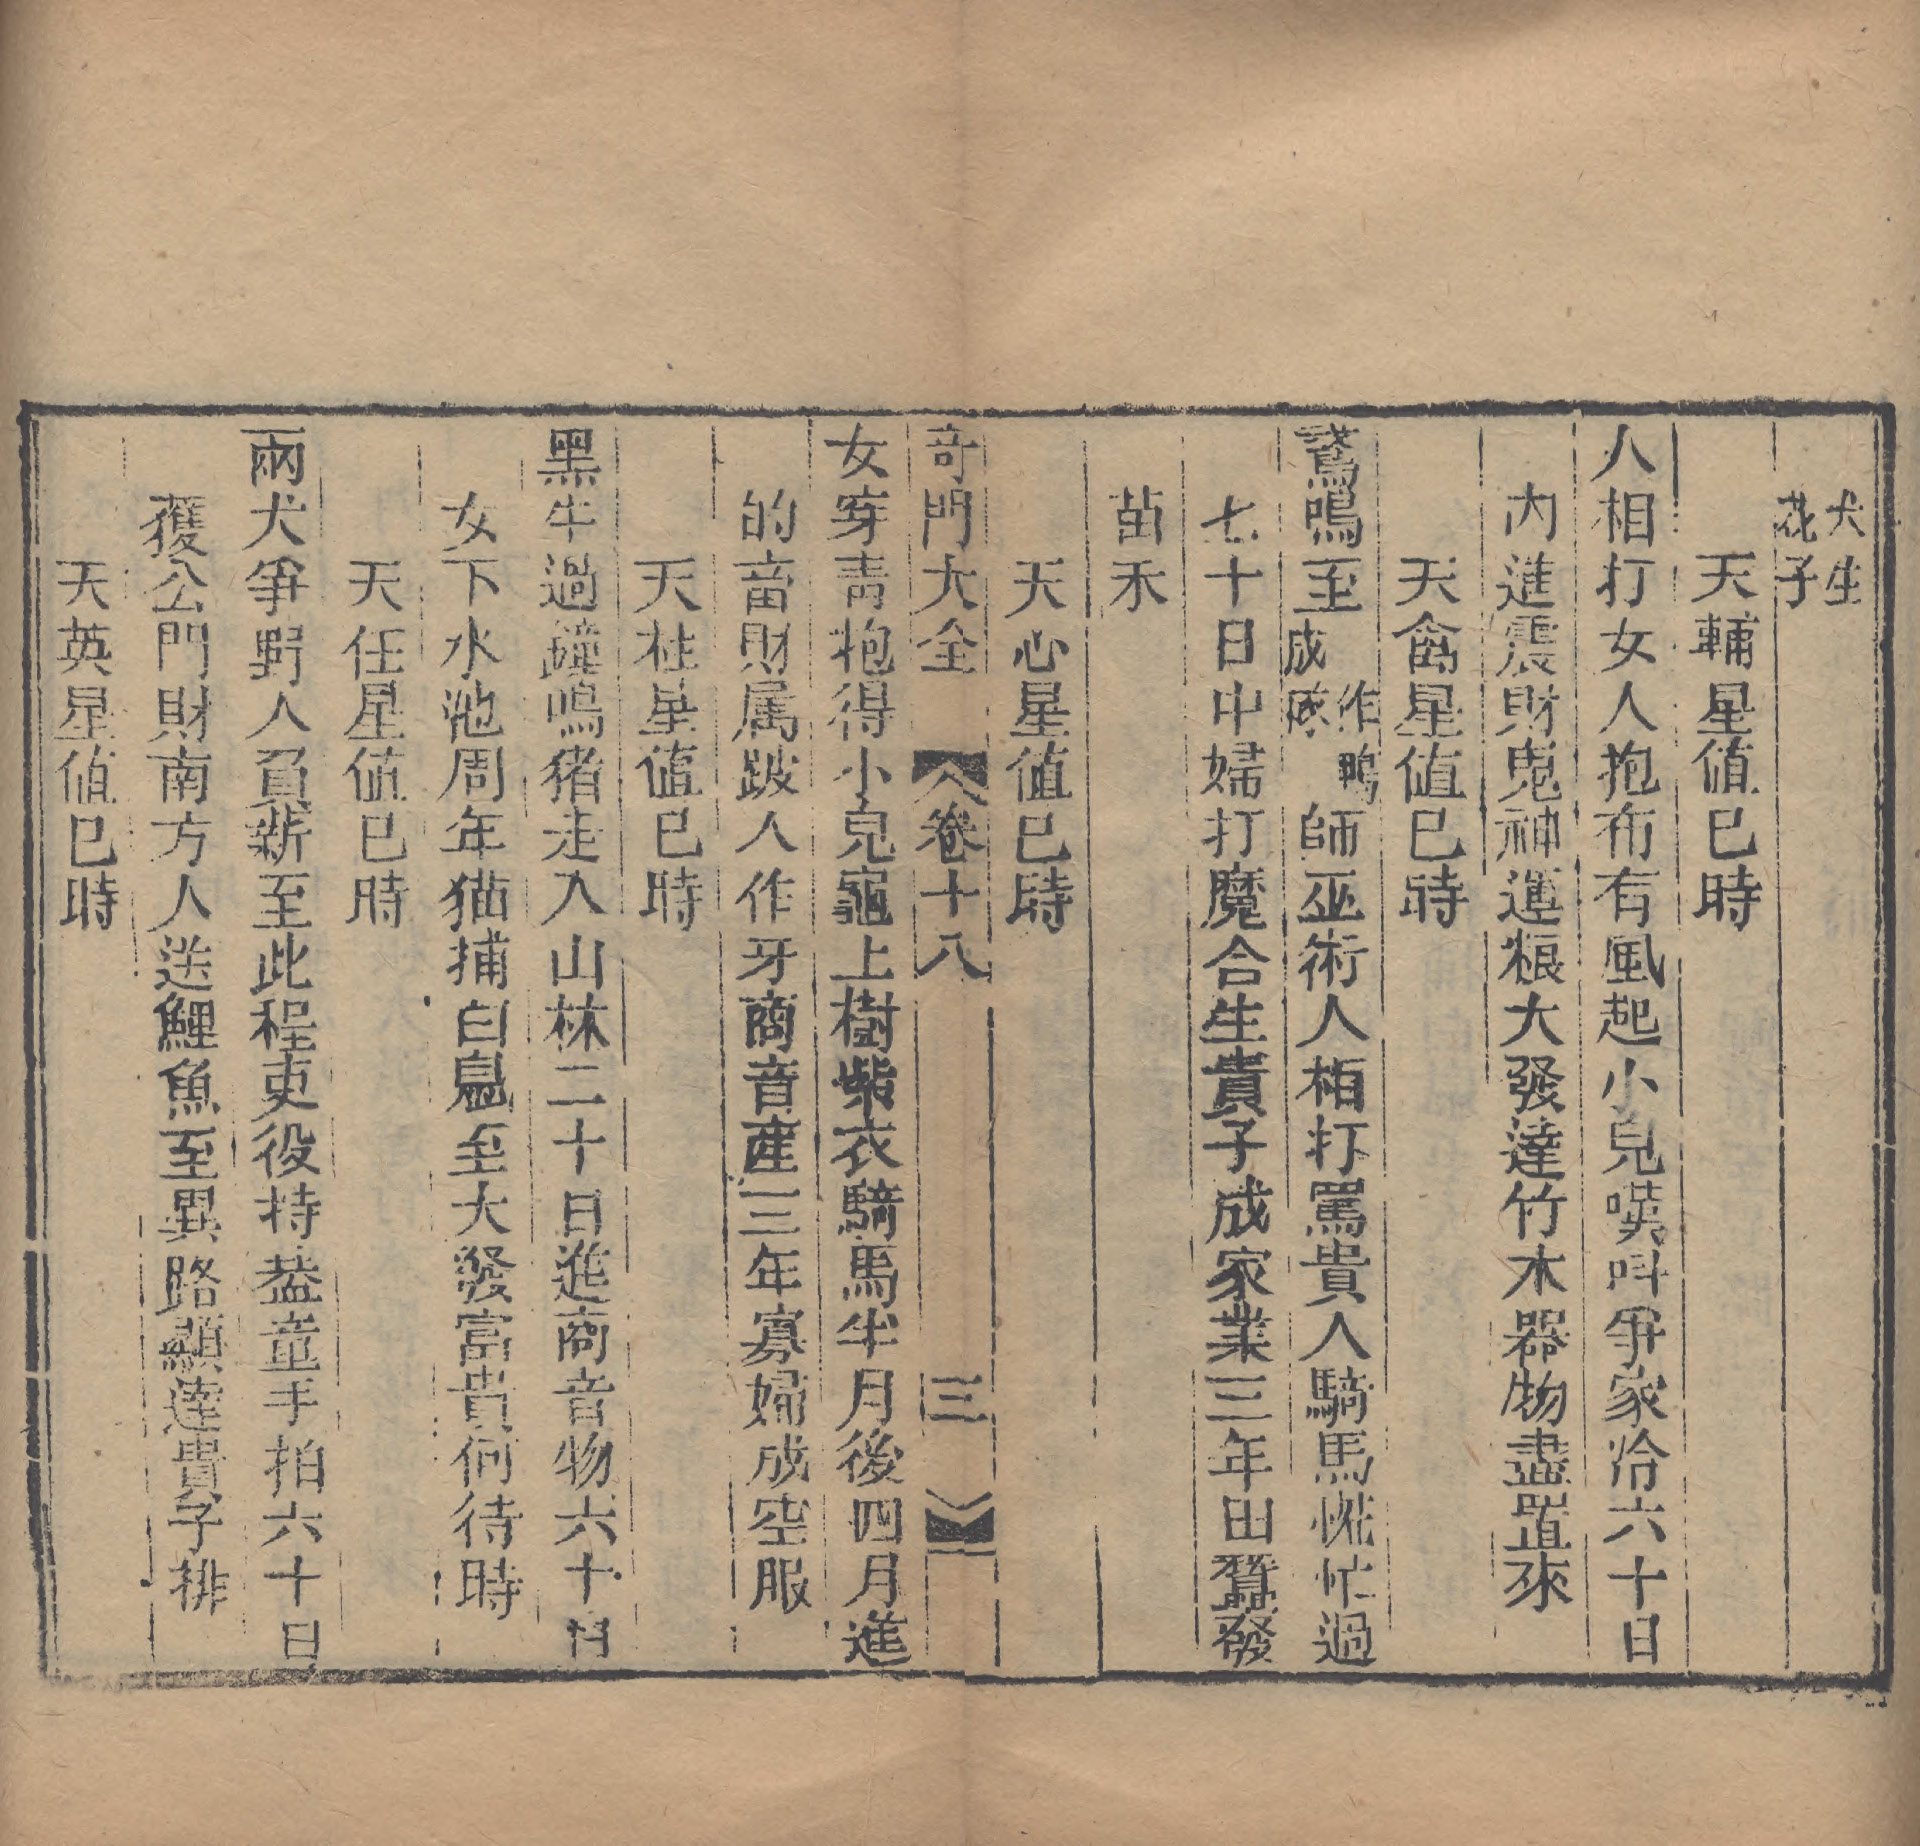 犬生花子
天輔星値巳時
人相打女人抱布有風起小兒嘆呌爭家洽六十日
内進震財鬼神運粮大發達竹木器物盡置來
天禽星値巳時
鵞鳴至成一作鴨師巫術人相打罵貴人騎馬慌忙過
七十日中婦打魔合生貴子成家業三年田蠶發
苗禾
天心星値巳時
竒門大全 卷十八 三
女穿青抱得小兒龜上樹紫衣騎馬半月後四月進
的畜財属跛人作牙商音産三年寡婦成空服
天柱星値巳時
黑牛過鐘鳴猪走入山林二十日進商音物六十日
女下水池周年猫捕白鼠至大發富貴何待時
天任星値巳時
兩犬爭野人負薪至此程吏役持葢童手拍六十日
獲公門財南方人送鯉魚至異路顯達貴子排
天英星値巳時